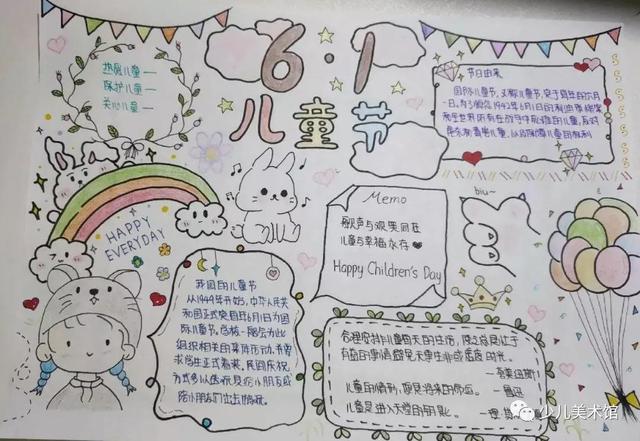 6·1
儿童节
热爱儿童一
保护儿童一
关心儿童一
HAPPY
EVERYDAY
节日由来
国际儿童节,又称儿童节,定于每年的六月
一日。为了悼念1942年6月1日的利迪策惨案
和全世界所有在战争中死难的儿童,反对
虐杀和毒害儿童,以及保障儿童的权利
Memo
歌声与欢笑同在
儿童与幸福永存
Happy Children's Day
biu~
我国的儿童节
从1949年开始,中华人民共
和国正式突自年6月1日为国
际儿童节。学校一般会为此
组织相关的集体活动,并要
求学生正式着装。民间庆祝
方式多以送玩具给小朋友或
陪小朋友们出去游玩。
合理安排儿童明天的生活,
有益的事情,避免
儿童的情形,便是将来的命运。一鲁迅
儿童是进入天堂的钥匙。
少儿美术馆